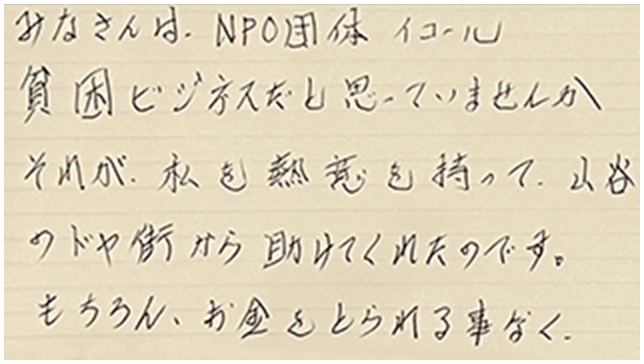 みなさんは、NPO団体イコール
貧困ビジネスだと思っていませんか
それが、私を熱意を持って、山谷
のドヤ街から助けてくれたのです。
もちろん、お金をとられる事なく、